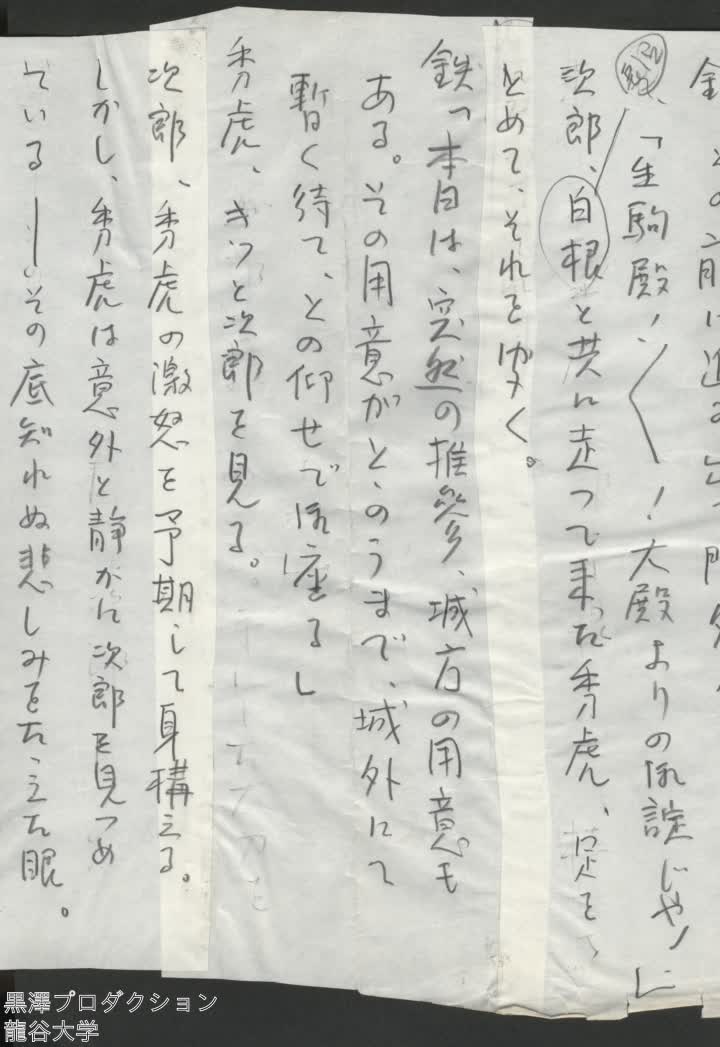 「生駒殿!〱!大殿よりの御諚じゃ!」
次郎、白根と共に走って来た秀虎、足を
とめて、それを聞く。
鉄「本日は、突然の推参、城方の用意も
ある。その用意がとゝのうまで、城外にて
暫く待て、との仰せで御座る」
秀虎、キッと次郎を見る。
次郎、秀虎の激怒を予期して身構える。
しかし、秀虎は意外と静かに次郎を見つめ
ている——その底知れぬ悲しみをたゝえた眼。
黒澤プロダクション
龍谷大学